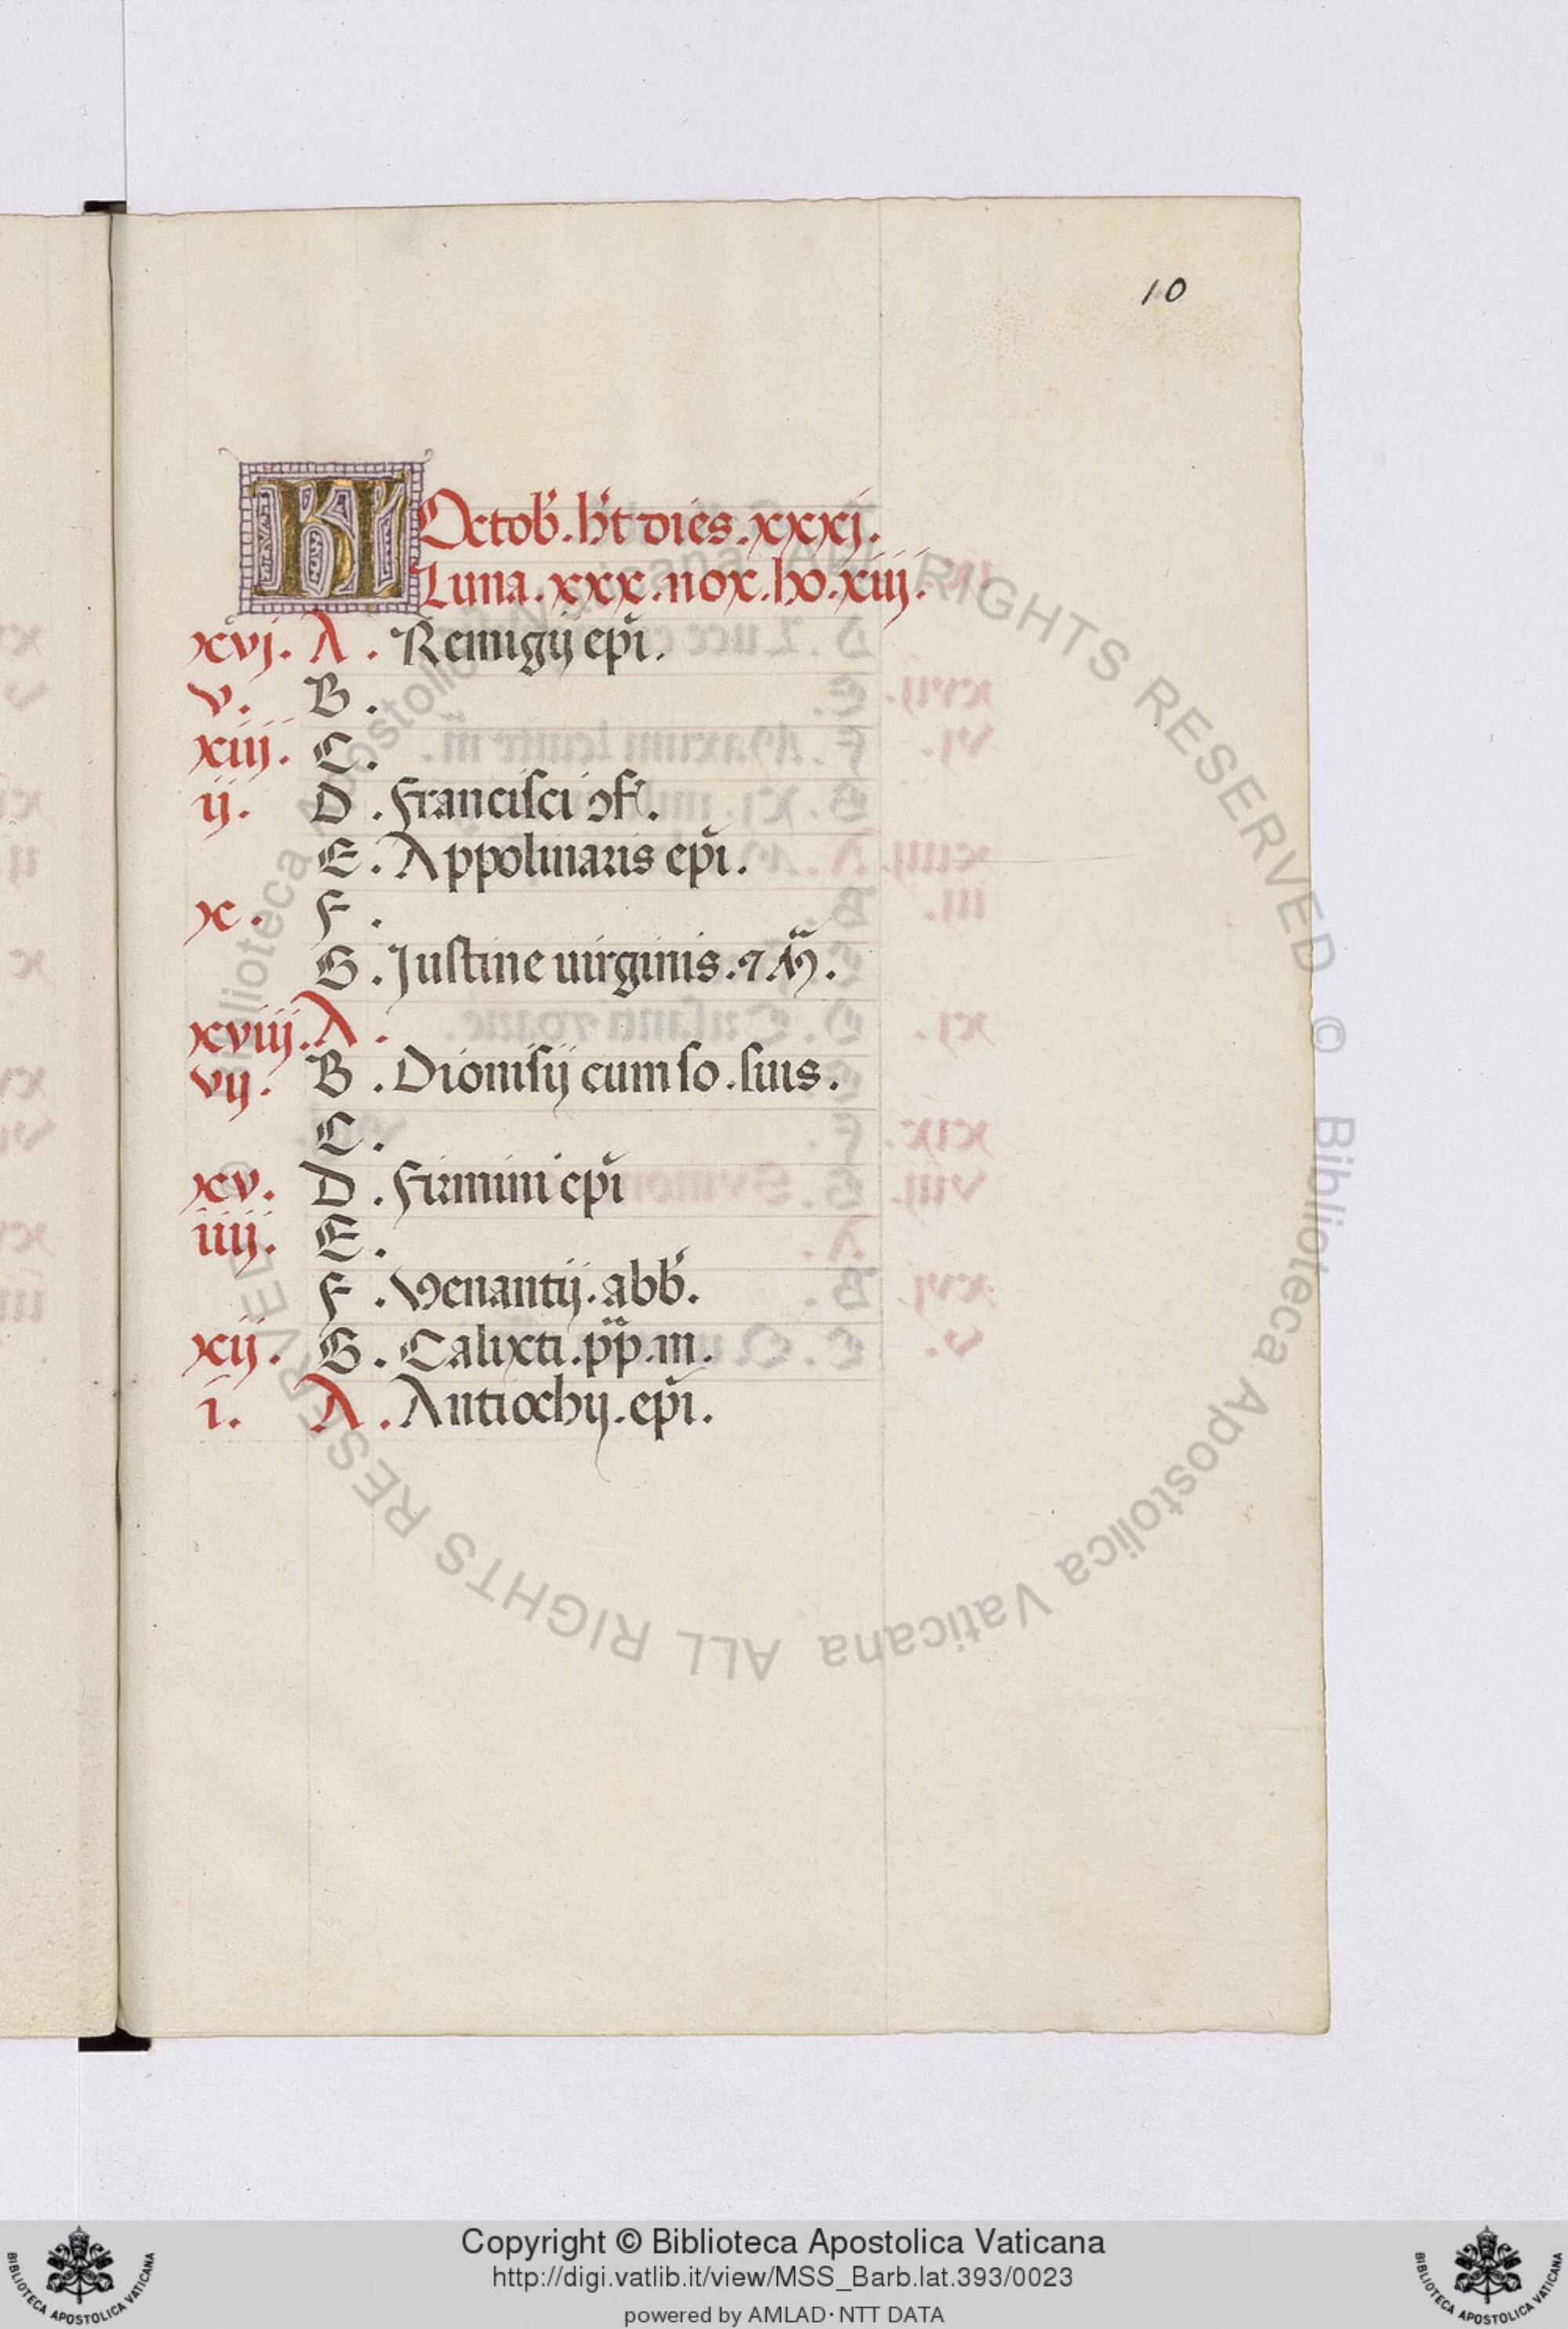 10
KL Octob̉. h̉t dies. xxxj.
Luna. xxx. nox. ho. xiij.
xvj. A. Remigij ep̉i.
v. B.
xiij. C.
ij. D. Francisci ↄf̉.
E. Appolinaris ep̉i.
x. F.
G. Justine uirginis. ⁊ M̃.
xviij. A.
vij. B. Dionisij cum so. suis.
C.
xv. D. Firmini ep̉i
iiij. E.
F. Venantij. abb̉.
xij. G. Calixti. pp̃. m.
i. A. Antiochij. ep̉i.
Biblioteca Apostolica Vaticana ALL RIGHTS RESERVED © Biblioteca Apostolica Vaticana ALL RIGHTS RESERVED ©
Copyright © Biblioteca Apostolica Vaticana
http://digi.vatlib.it/view/MSS_Barb.lat.393/0023
powered by AMLAD·NTT DATA
BIBLIOTECA APOSTOLICA VATICANA
BIBLIOTECA APOSTOLICA VATICANA